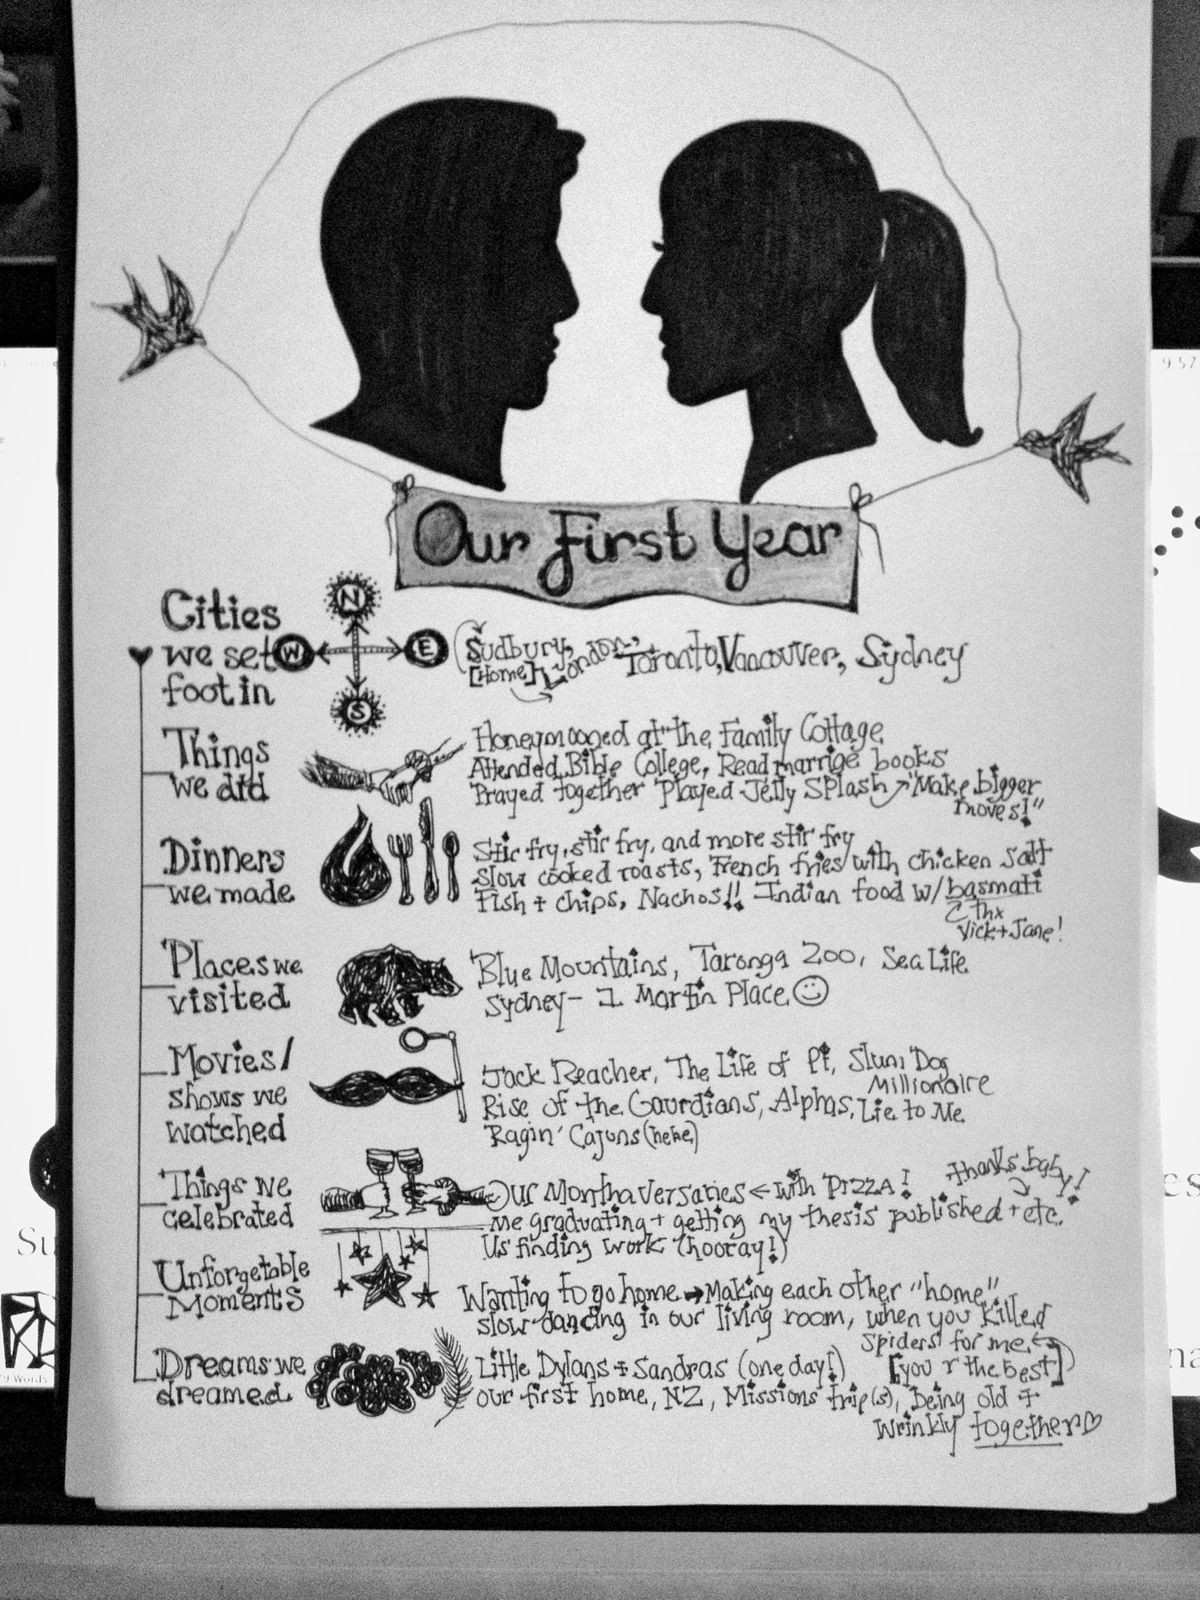 Our First Year
Cities
we set
foot in
N
W
E
S
Sudbury, London, Toronto, Vancouver, Sydney
[Home]
Things
we did
Honeymooned at the Family Cottage
Attended Bible College, Read marrige books
Prayed together Played Jelly Splash "Make bigger
moves!"
Dinners
we made
Stir fry, stir fry, and more stir fry
slow cooked roasts, French fries with chicken salt
Fish + chips, Nachos!! Indian food w/ basmati
Thx
Vick + Jane!
Places we
visited
Blue Mountains, Taronga Zoo, Sea Life
Sydney - 1 Martin Place
Movies/
shows we
watched
Jack Reacher, The Life of Pi, Slum Dog
Millionaire
Rise of the Gaurdians, Alphas, Lie to Me
Ragin' Cajuns (hehe)
Things we
celebrated
Our Monthaversaries ← with PIZZA!
thanks baby!
me graduating + getting my thesis published + etc.
Us finding work (hooray!)
Unforgetable
Moments
Wanting to go home → Making each other "home"
slow dancing in our living room, when you killed
spiders for me
[you r the best]
Dreams we
dreamed
Little Dylans + Sandras (one day!)
our first home, NZ, Missions trip(s), Being old +
wrinkly together
9:57
9 Words